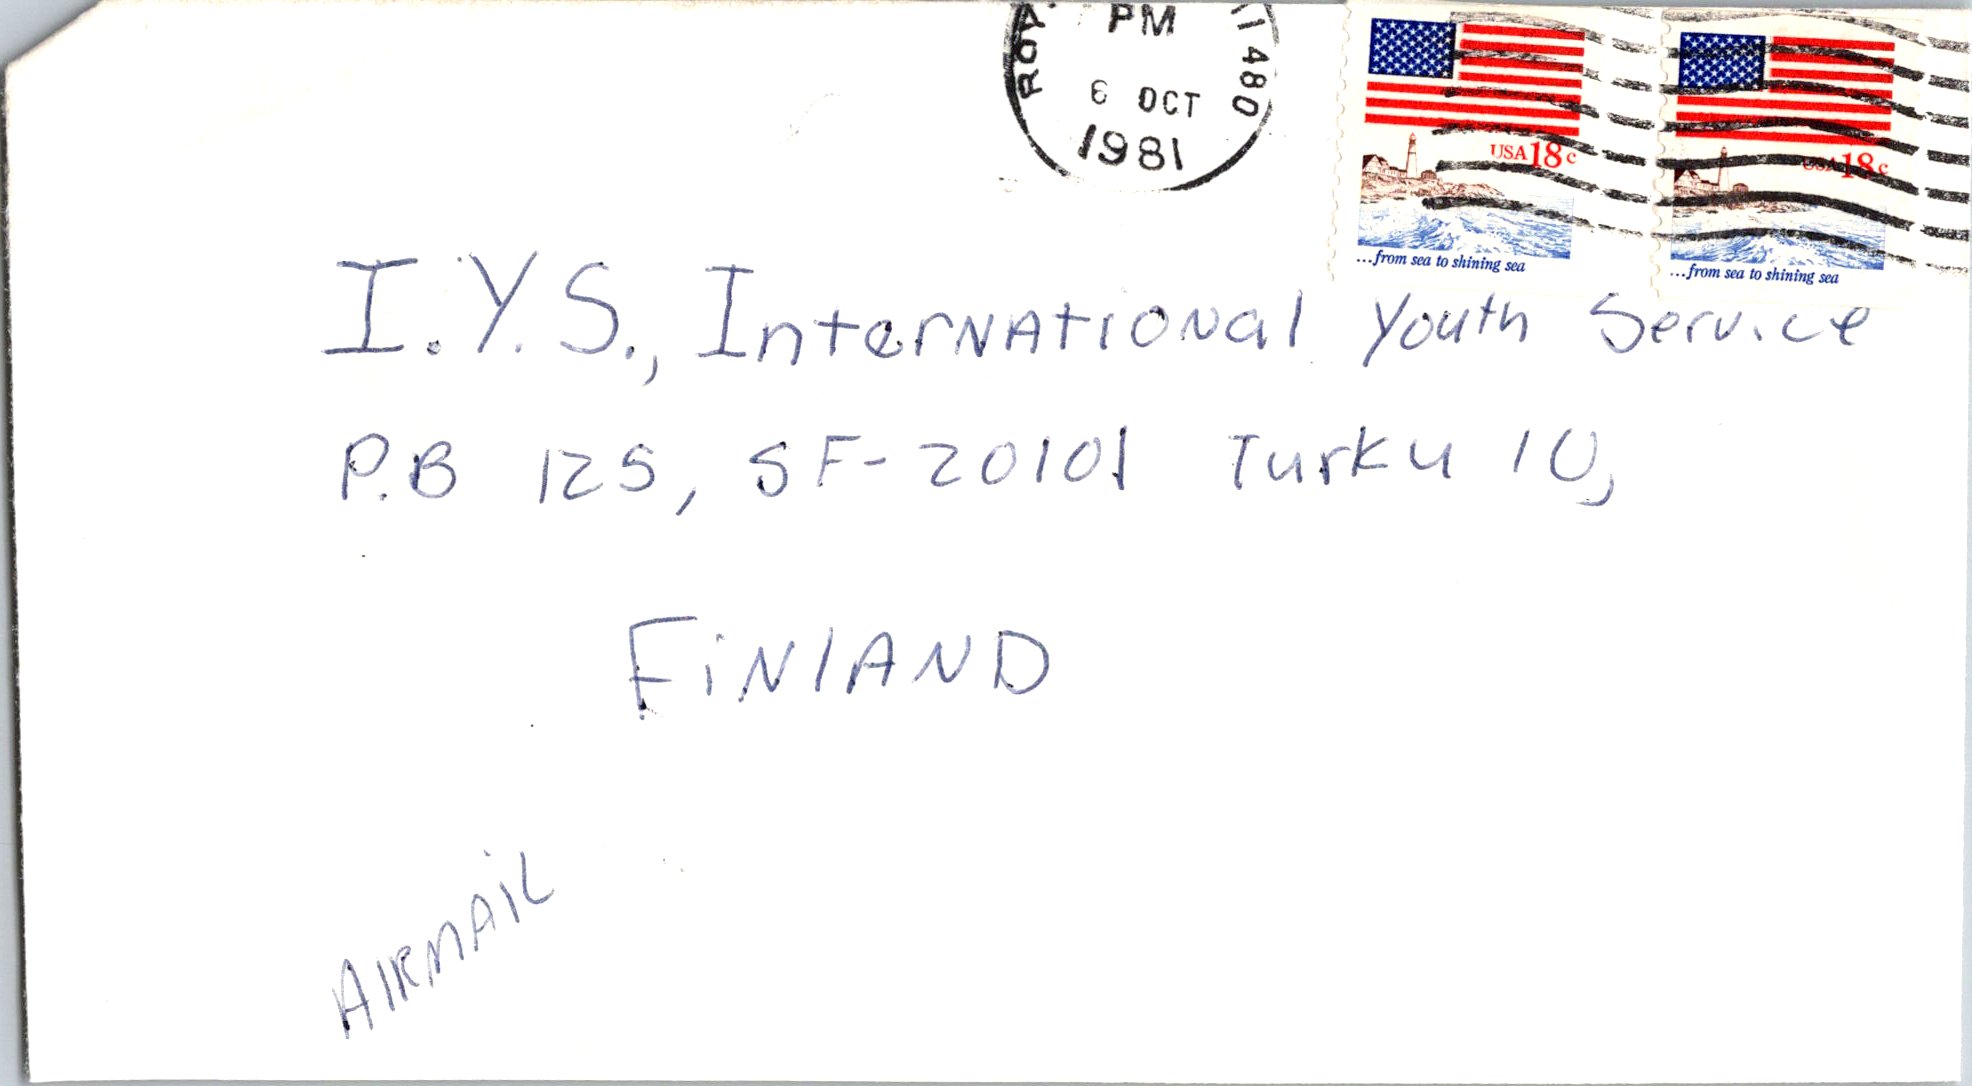 PM
6 OCT
1981
11480
USA 18c
...from sea to shining sea
USA 18c
...from sea to shining sea
I.Y.S., International Youth Service
P.B 125, SF-20101 Turku 10,
FiNlAND
AIRMAIL